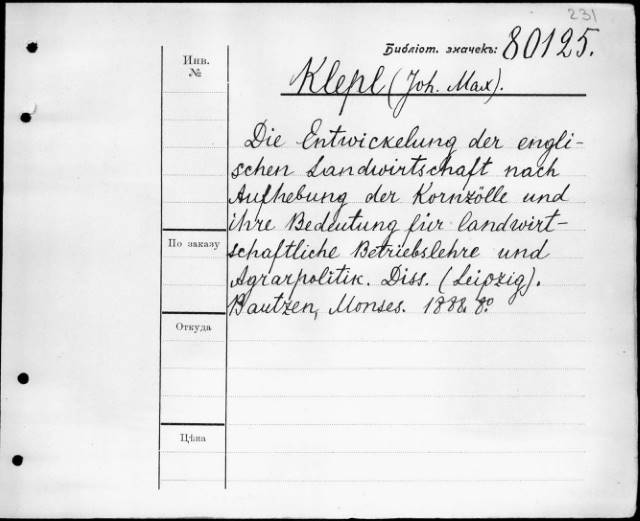 231
Библіот. значекъ: 80125.
Инв.
№
Klepl (Joh. Max).
Die Entwickelung der engli-
schen Landwirtschaft nach
Aufhebung der Kornzölle und
ihre Bedeutung für landwirt-
schaftliche Betriebslehre und
Agrarpolitik. Diss. (Leipzig).
Bautzen, Monses. 1888. 8º
По заказу
Откуда
Цѣна